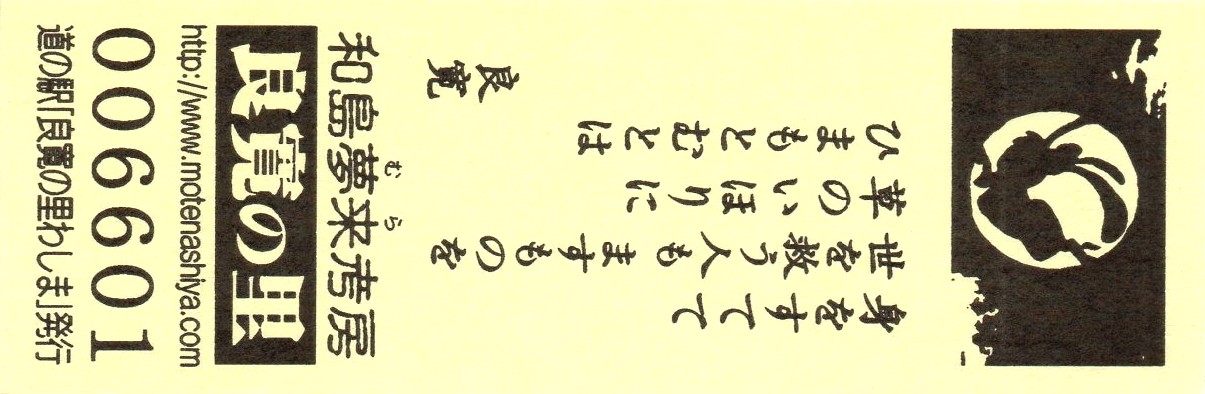 身をすてて
世を救う人も ますものを
草のいほりに
ひまもとむとは
良寛
むら
和島夢来考房
良寛の里
http://www.motenashiya.com
006601
道の駅「良寛の里わしま」発行